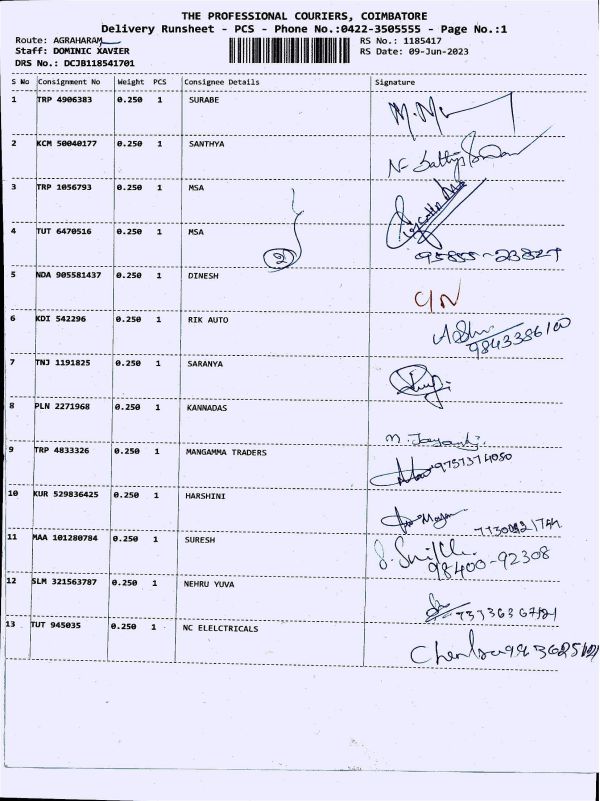 THE PROFESSIONAL COURIERS, COIMBATORE
Delivery Runsheet - PCS - Phone No.:0422-3505555 - Page No.:1
Route: AGRAHARAM RS No.: 1185417
Staff: DOMINIC XAVIER RS Date: 09-Jun-2023
DRS No.: DCJB118541701
S No Consignment No Weight PCS Consignee Details Signature
1 TRP 4906383 0.250 1 SURABE
2 KCM 50040177 0.250 1 SANTHYA
3 TRP 1056793 0.250 1 MSA
4 TUT 6470516 0.250 1 MSA
2 95855-23827
5 NDA 905581437 0.250 1 DINESH
C/N
6 KDI 542296 0.250 1 RIK AUTO
7 TNJ 1191825 0.250 1 SARANYA
8 PLN 2271968 0.250 1 KANNADAS
9 TRP 4833326 0.250 1 MANGAMMA TRADERS
10 KUR 529836425 0.250 1 HARSHINI
11 MAA 101280784 0.250 1 SURESH
98400-92308
12 SLM 321563787 0.250 1 NEHRU YUVA
13 TUT 945035 0.250 1 NC ELELCTRICALS